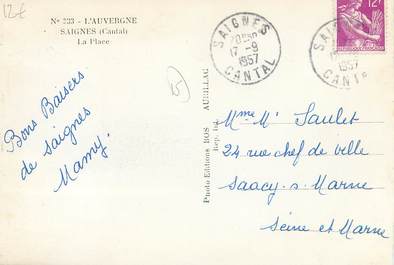 12f
N° 223 - L'AUVERGNE
SAIGNES (Cantal)
La Place
Bons Baisers
de Saignes
Mamy.
Photo-Editions BOS AURILLAC
Rep. Int.
SAIGNES
17 -9
1957
CANTAL
12F
1957
Mme Mr Saulet
24 rue chef de ville
Saacy. s. Marne
Seine et Marne